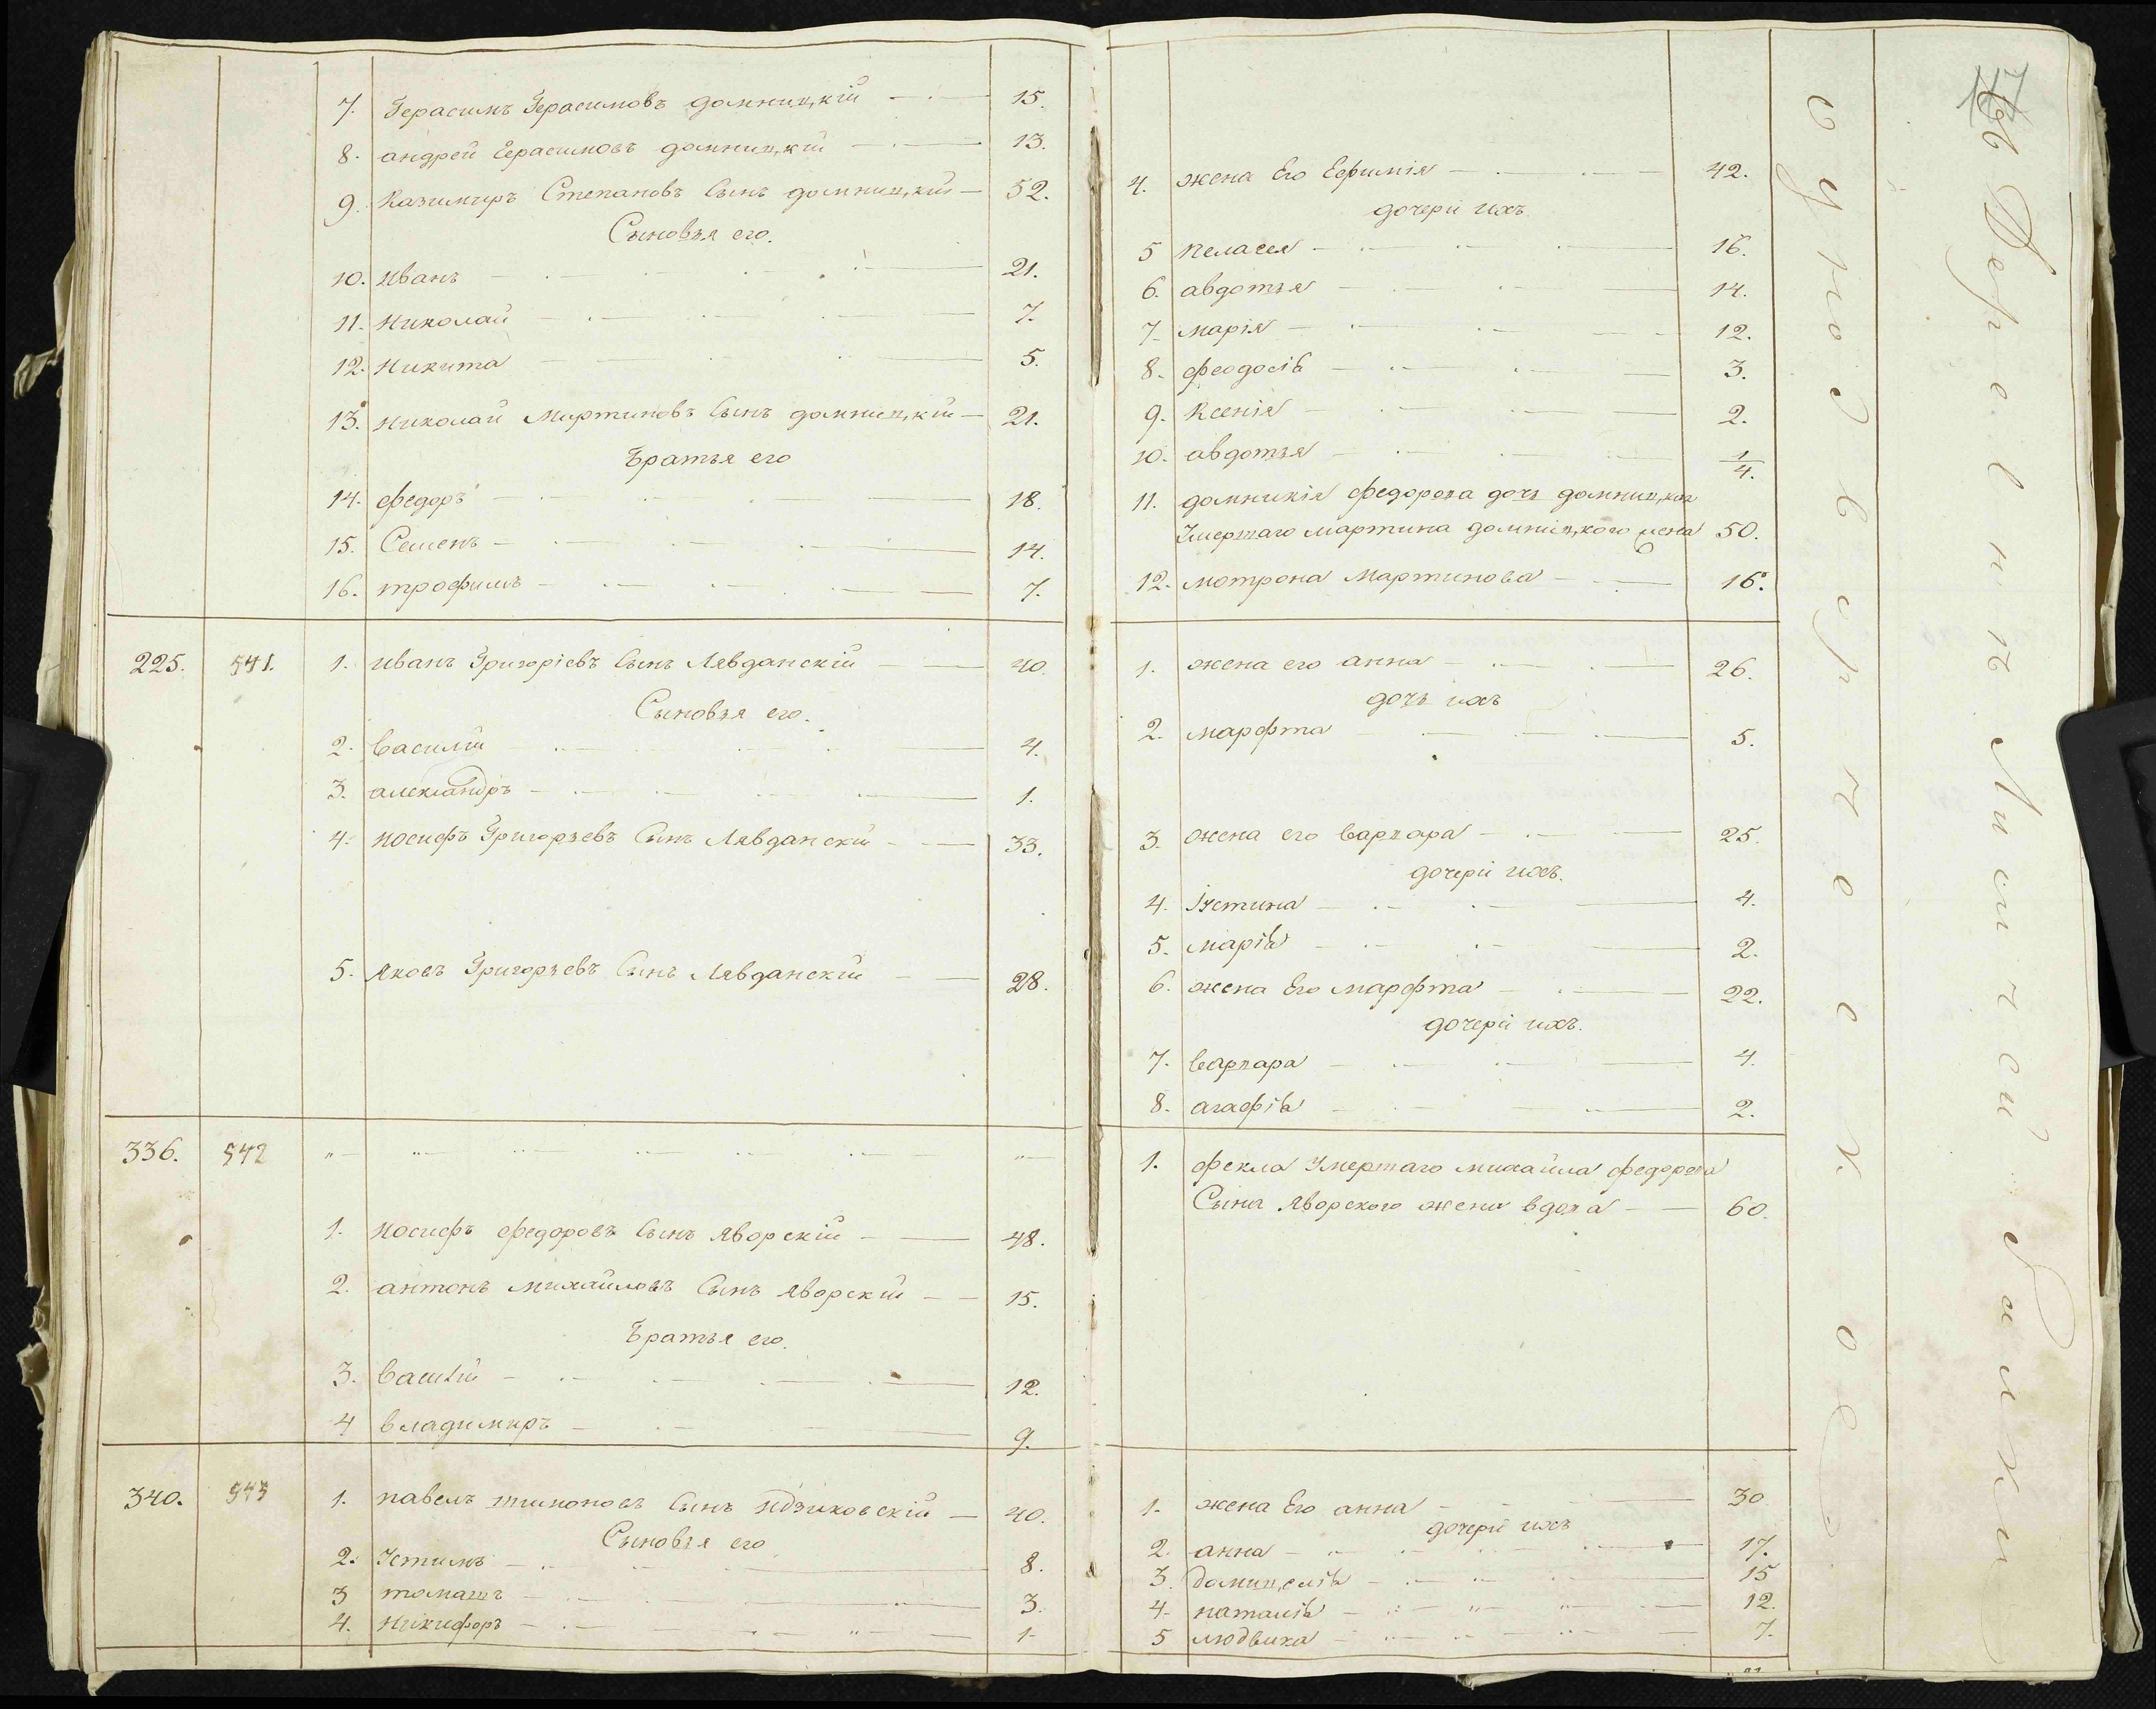 7. Герасимъ Герасимовъ домницкій 15.
8. андрей Герасимовъ домницкій 13.
9. Казимиръ Степановъ Сынъ домницкій 52.
Сыновья его.
10. Иванъ 21.
11. Николай 7.
12. Никита 5.
13. Николай Мартиновъ Сынъ домницкій 21.
Братья его
14. федоръ 18.
15. Семенъ 14.
16. трофимъ 7.
225. 541. 1. Иванъ Григоріевъ Сынъ Лявданскій 40.
Сыновья его.
2. Василій 4.
3. александръ 1.
4. Иосифъ Григорьевъ Сынъ Лявданскій 33.
5. Яковъ Григорьевъ Сынъ Лявданскій 28.
336. 542
1. Иосифъ федоровъ Сынъ Яворскій 48.
2. антонъ Михайловъ Сынъ Яворскій 15.
Братья его.
3. Василій 12.
4 владимиръ 9.
340. 543 1. павелъ тимоновъ Сынъ Идзиковскій 40.
Сыновья его
2. Устимъ 8.
3 томашъ 3.
4. Никифоръ 1.
4. жена Его Ефимія 42.
дочери ихъ
5 пелагея 16.
6. авдотья 14.
7. марія 12.
8. феодосія 3.
9. Ксенія 2.
10. авдотья 1/4.
11. домникія федорова дочь домницкая
Умершаго мартина домницкого жена 50.
12. мотрона Мартинова 16.
1. жена его анна 26.
дочь ихъ
2. марфта 5.
3. жена его варвара 25.
дочери ихъ.
4. Іустина 4.
5. марія 2.
6. жена Его марфта 22.
дочери ихъ.
7. варвара 4.
8. агафія 2.
1. фекла Умершаго михайла федорова
Сына Яворского жена вдова 60.
1. жена Его анна 30
дочери ихъ
2. анна 17.
3. Домицелія 15
4. наталія 12.
5 людвика 7.
Въ Деревни Лисичей Балки
одно дворческое